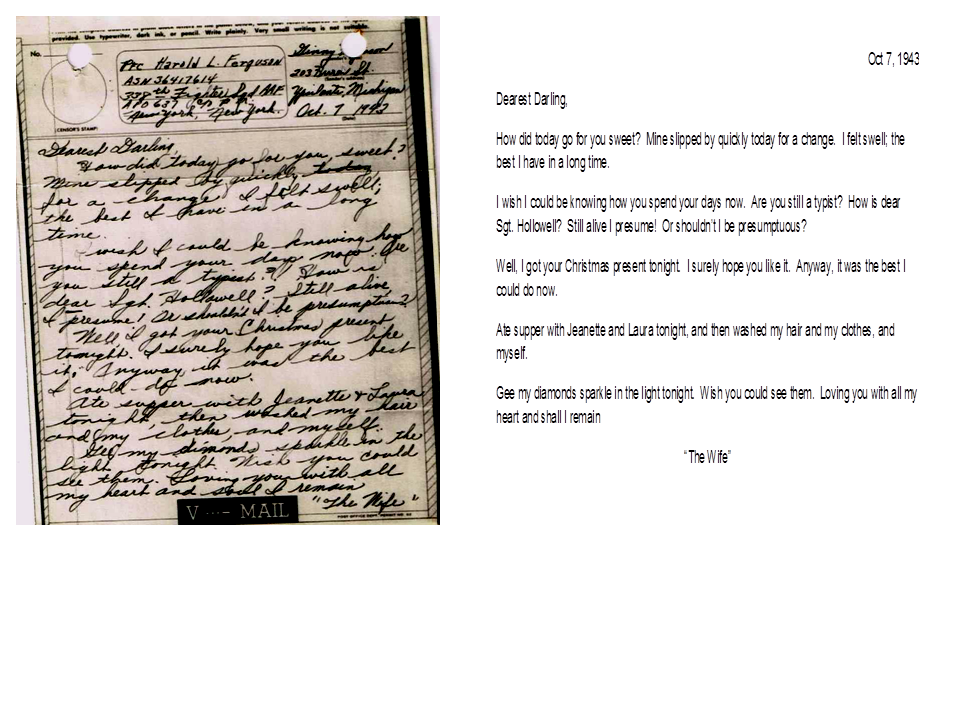 provided. Use typewriter, dark ink, or pencil. Write plainly. Very small writing is not suitable.
No.
(CENSOR'S STAMP)
Pfc Harold L. Ferguson
ASN 36417614
338th Fighter Sqd AAF
APO 637 c/o P.M.
New York, New York.
Ginny
203 St.
Ypsilanti, Michigan
Oct. 7 1943
(Date)
Dearest Darling,
How did today go for you, sweet?
Mine slipped by quickly today
for a change. I felt swell;
the best I have in a long
time.
I wish I could be knowing how
you spend your days now. Are
you still a typist? How is
dear Sgt. Hollowell? Still alive,
I presume! Or shouldn't I be presumptious?
Well, I got your Christmas present
tonight. I surely hope you like
it. Anyway, it was the best
I could do now.
Ate supper with Jeanette & Laura
tonight, then washed my hair
and my clothes, and myself.
Gee my dimonds sparkle in the
light tonight. Wish you could
see them. Loving you with all
my heart and soul I remain
"The Wife"
V ···– MAIL
Oct 7, 1943
Dearest Darling,
How did today go for you sweet? Mine slipped by quickly today for a change. I felt swell; the
best I have in a long time.
I wish I could be knowing how you spend your days now. Are you still a typist? How is dear
Sgt. Hollowell? Still alive I presume! Or shouldn't I be presumptuous?
Well, I got your Christmas present tonight. I surely hope you like it. Anyway, it was the best I
could do now.
Ate supper with Jeanette and Laura tonight, and then washed my hair and my clothes, and
myself.
Gee my diamonds sparkle in the light tonight. Wish you could see them. Loving you with all my
heart and shall I remain
"The Wife"